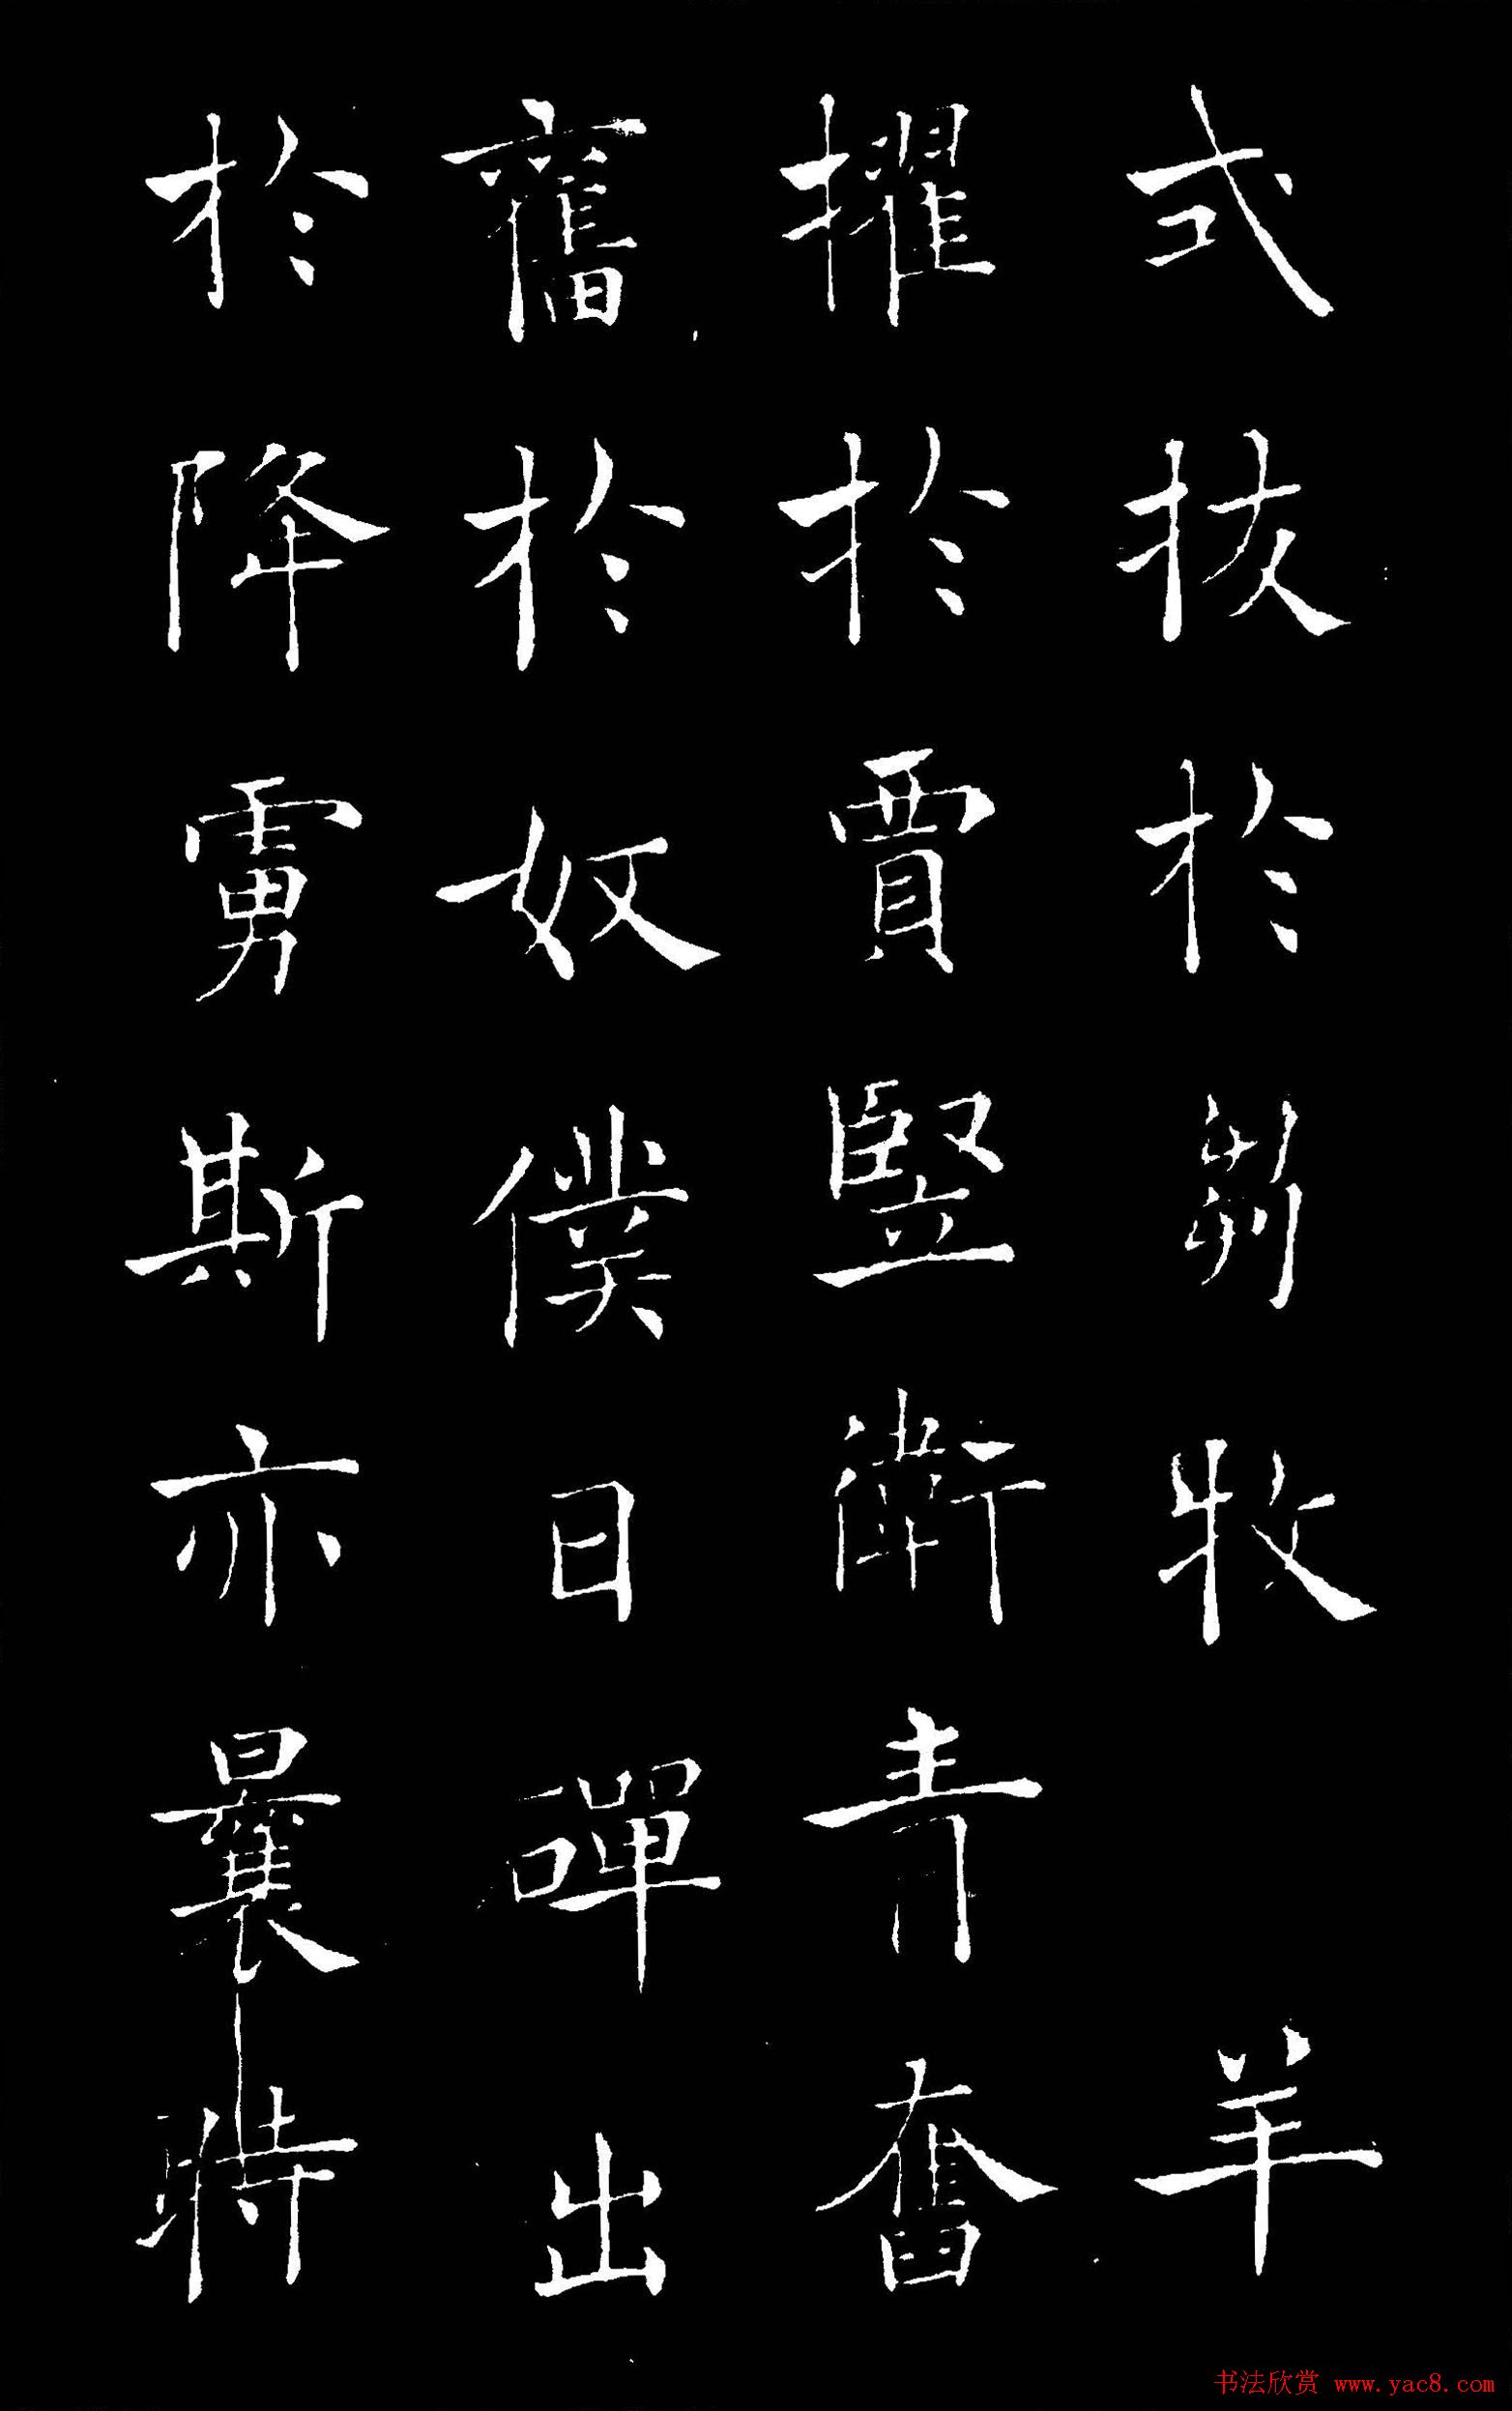 式拔於芻牧羊
擢於賈豎衛青奮
舊於奴僕日磾出
於降虜斯亦曩時
书法欣赏 www.yac8.com